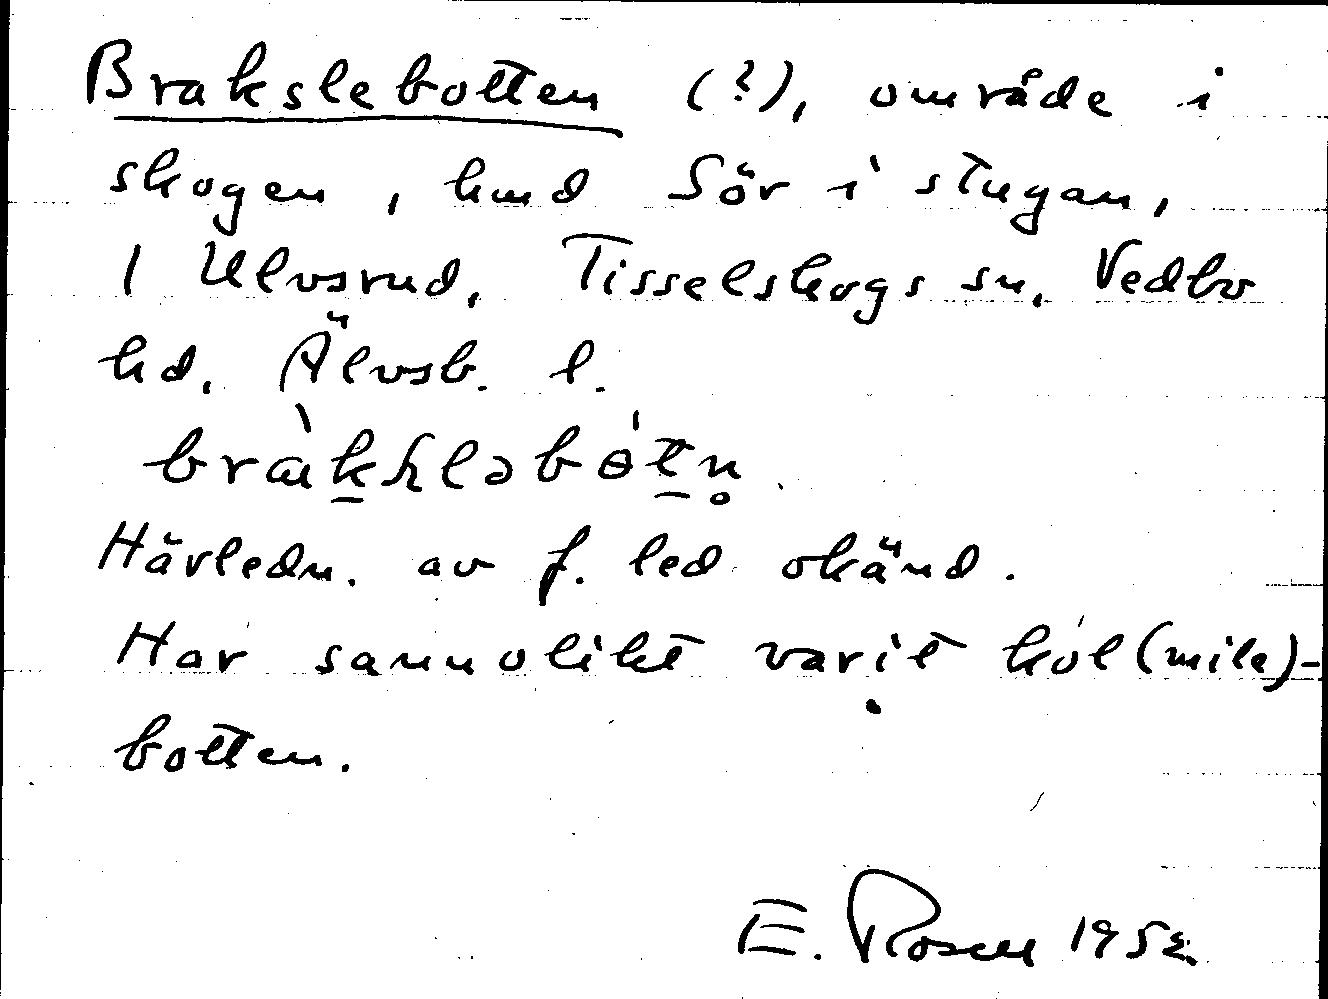 Brakslebotten (?), område i
skogen, hmd Sör i stugan,
1 Ulvsrud, Tisselskogs sn, Vedbo
hd, Älvsb. l.
Härledn. av f. led okänd.
Har sannolikt varit kol(mile)-
botten.
E. Rosell 195